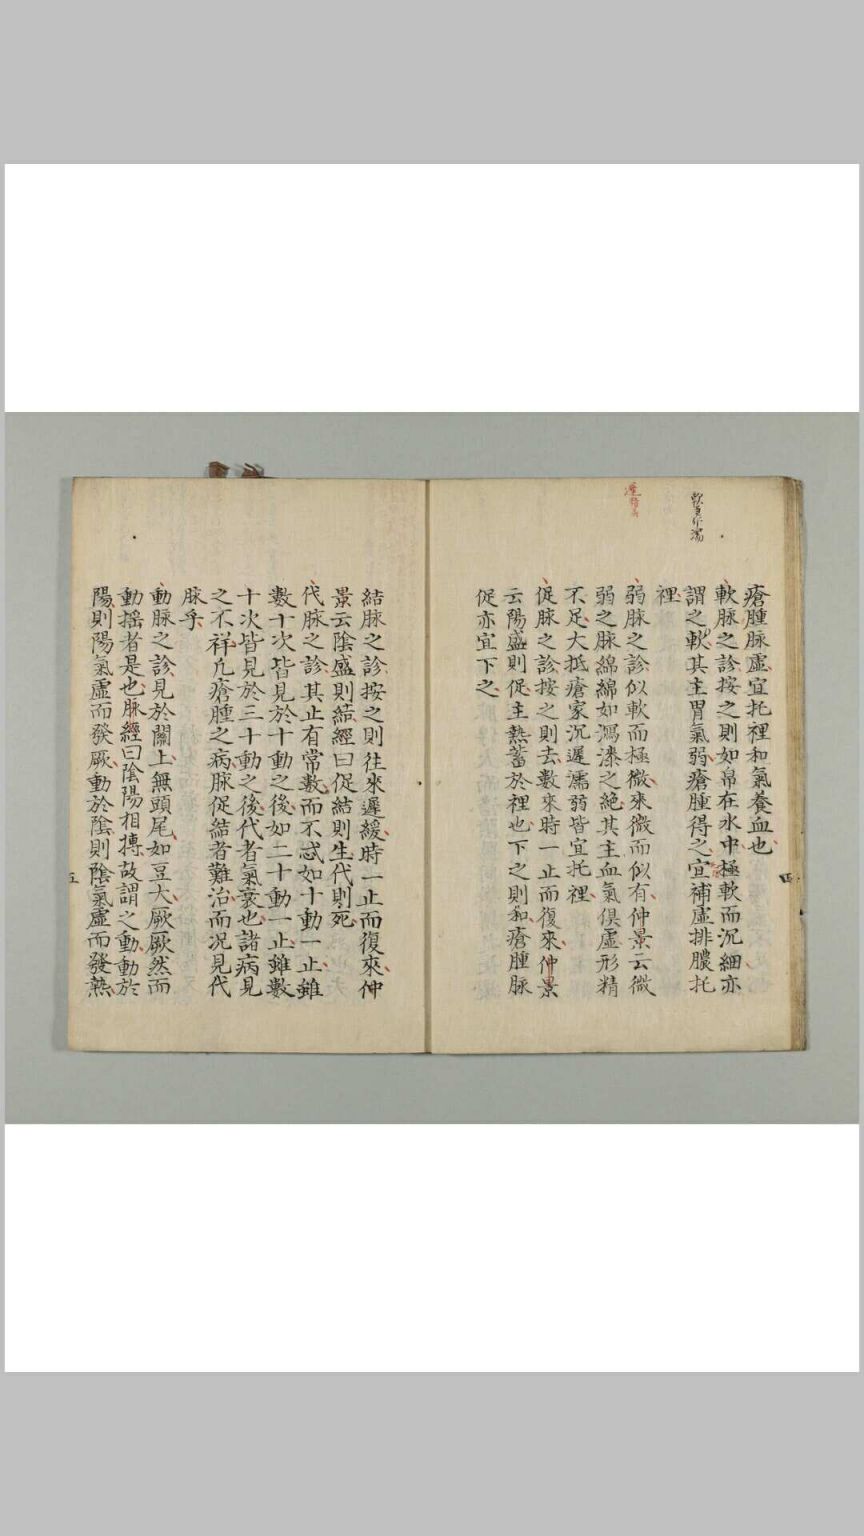 瘡腫脉虛宜托裡和氣養血也
軟脉之診按之則如帛在水中極軟而沉細亦
謂之軟其主胃氣弱瘡腫得之宜補虛排膿托
裡
弱脉之診似軟而極微來微而似有仲景云微
弱之脉綿綿如瀉漆之絶其主血氣俱虛形精
不足大抵瘡家沉遲濡弱皆宜托裡
促脉之診按之則去數來時一止而復來仲景
云陽盛則促主熱蓄於裡也下之則和瘡腫脉
促亦宜下之
四
結脉之診按之則往來遲緩時一止而復來仲
景云陰盛則結經曰促結則生代則死
代脉之診其止有常數而不忒如十動一止雖
數十次皆見於十動之後如二十動一止雖數
十次皆見於三十動之後代者氣衰也諸病見
之不祥凢瘡腫之病脉促結者難治而况見代
脉乎
動脉之診見於關上無頭尾如豆大厥厥然而
動揺者是也脉經曰陰陽相搏故謂之動動於
陽則陽氣虛而發厥動於陰則陰氣虛而發熱
五